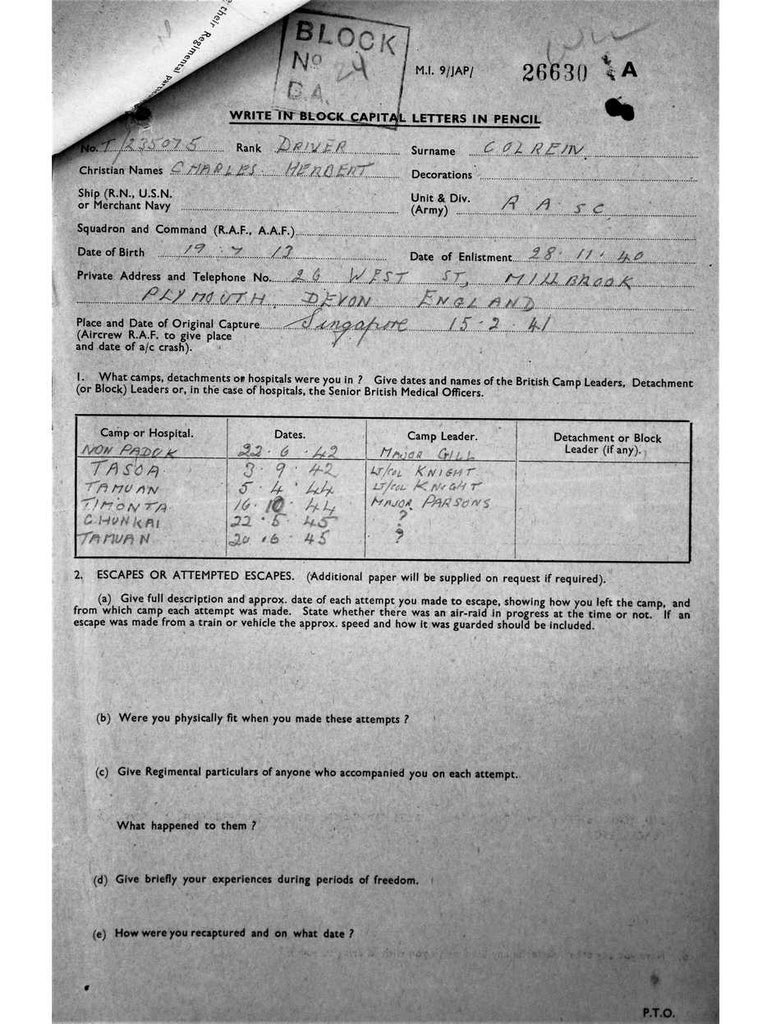 their Regimental
BLOCK
No 24
M.I. 9/JAP/ 26630 A
WRITE IN BLOCK CAPITAL LETTERS IN PENCIL
No. T/235075 Rank DRIVER Surname COLREIN
Christian Names CHARLES HERBERT Decorations
Ship (R.N., U.S.N. or Merchant Navy
Unit & Div. (Army) R A S C
Squadron and Command (R.A.F., A.A.F.)
Date of Birth 19 . 7 . 13 Date of Enlistment 28 . 11 . 40
Private Address and Telephone No. 26 WEST ST, MILLBROOK
PLYMOUTH, DEVON ENGLAND
Place and Date of Original Capture Singapore 15 - 2 . 41
(Aircrew R.A.F. to give place
and date of a/c crash).
1. What camps, detachments or hospitals were you in ? Give dates and names of the British Camp Leaders, Detachment
(or Block) Leaders or, in the case of hospitals, the Senior British Medical Officers.
Camp or Hospital. Dates. Camp Leader. Detachment or Block Leader (if any).
NON PADUK 22 . 6 . 42 MAJOR GILL
TASOA 3 . 9 . 42 LT/COL KNIGHT
TAMUAN 5 . 4 . 44 LT/COL KNIGHT
TIMONTA 16 . 10 . 44 MAJOR PARSONS
CHUNKAI 22 . 5 . 45 ?
TAMUAN 20 . 6 . 45 ?
2. ESCAPES OR ATTEMPTED ESCAPES. (Additional paper will be supplied on request if required).
(a) Give full description and approx. date of each attempt you made to escape, showing how you left the camp, and
from which camp each attempt was made. State whether there was an air-raid in progress at the time or not. If an
escape was made from a train or vehicle the approx. speed and how it was guarded should be included.
(b) Were you physically fit when you made these attempts ?
(c) Give Regimental particulars of anyone who accompanied you on each attempt.
What happened to them ?
(d) Give briefly your experiences during periods of freedom.
(e) How were you recaptured and on what date ?
P.T.O.